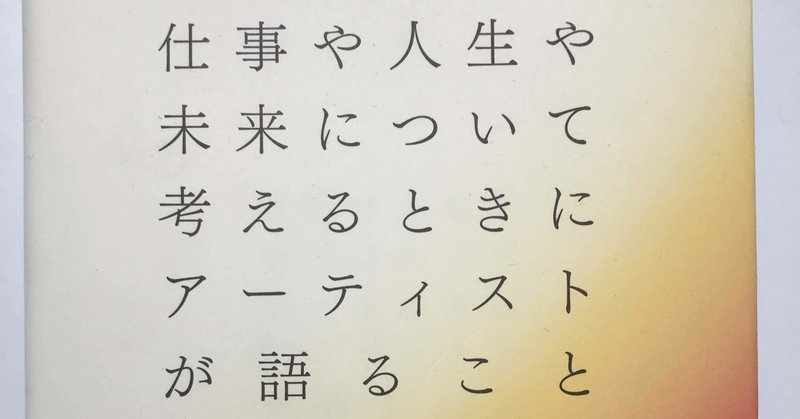 仕事や人生や
未来について
考えるときに
アーティスト
が語ること